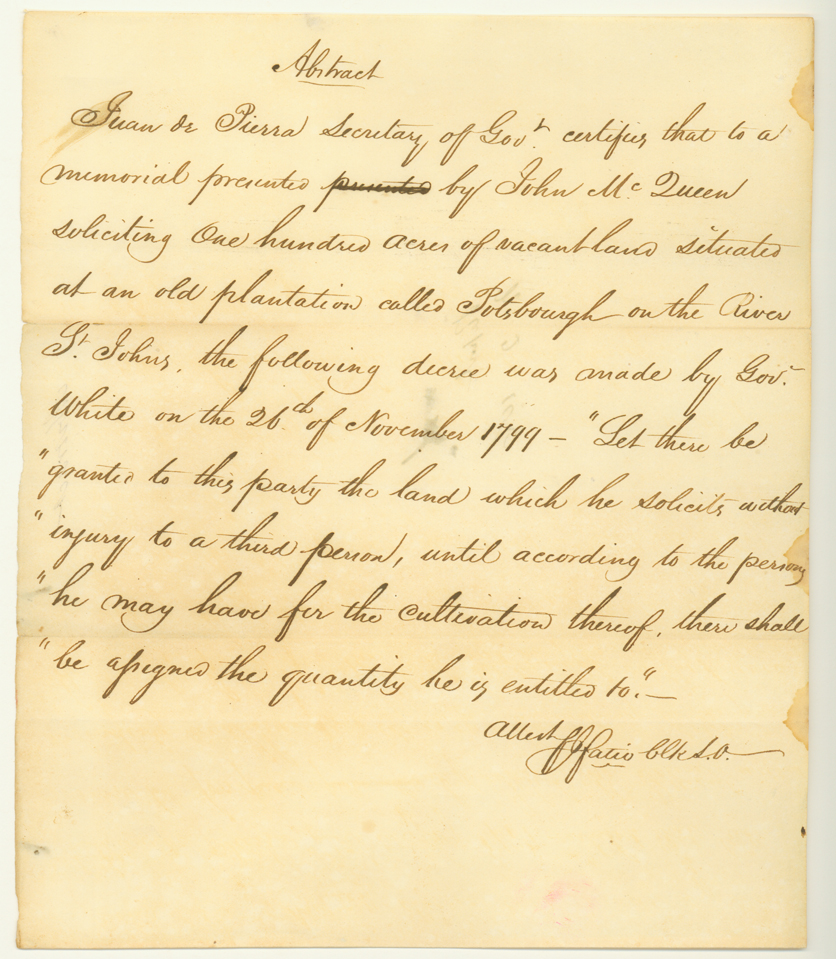 Abstract
Juan de Pierra Secretary of Govt. certifies that to a
memorial presented presented by John Mc Queen
soliciting One hundred acres of vacant land situated
at an old plantation called Potsbourgh on the River
St. Johns, the following decree was made by Govr.
White on the 26th of November 1799 — "Let there be
"granted to this party the land which he solicits without
"injury to a third person, until according to the persons
"he may have for the cultivation thereof, there shall
"be assigned the quantity he is entitled to." —
Attest F J Fatio Clk S.O.